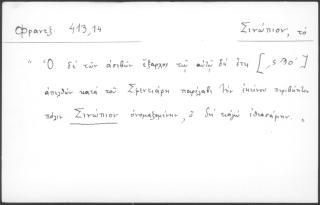 Φραντζ. 413,14 Σινώπιον, τό
" Ὁ δὲ τῶν ἀσεβῶν ἔξαρχος τῷ αὐτῷ δὴ ἔτει [,ς 70']
ἀπελθὼν κατὰ τοῦ Σμεντιάρη παρέλαβε τὴν ἐκείνου περιβόητον
πόλιν Σινώπιον ὀνομαζομένην, ὃ δὴ κἀγὼ ἐθεασάμην. "